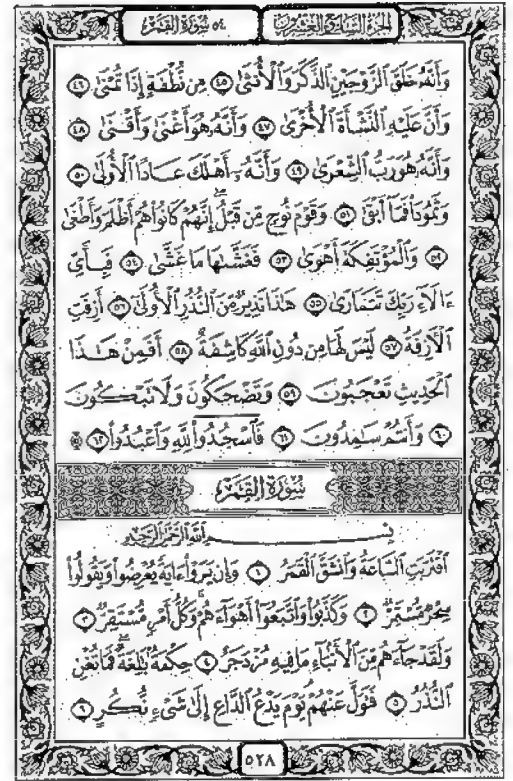 ٥٤ سُورَةُ القَمَرِ
الجزء السابع والعشرون
وَأَنَّهُۥ خَلَقَ ٱلزَّوْجَيْنِ ٱلذَّكَرَ وَٱلْأُنثَىٰ ٤٥ مِن نُّطْفَةٍ إِذَا تُمْنَىٰ ٤٦
وَأَنَّ عَلَيْهِ ٱلنَّشْأَةَ ٱلْأُخْرَىٰ ٤٧ وَأَنَّهُۥ هُوَ أَغْنَىٰ وَأَقْنَىٰ ٤٨
وَأَنَّهُۥ هُوَ رَبُّ ٱلشِّعْرَىٰ ٤٩ وَأَنَّهُۥٓ أَهْلَكَ عَادًا ٱلْأُولَىٰ ٥٠
وَثَمُودَا۟ فَمَآ أَبْقَىٰ ٥١ وَقَوْمَ نُوحٍ مِّن قَبْلُ ۖ إِنَّهُمْ كَانُوا۟ هُمْ أَظْلَمَ وَأَطْغَىٰ
٥٢ وَٱلْمُؤْتَفِكَةَ أَهْوَىٰ ٥٣ فَغَشَّىٰهَا مَا غَشَّىٰ ٥٤ فَبِأَىِّ
ءَالَآءِ رَبِّكَ تَتَمَارَىٰ ٥٥ هَـٰذَا نَذِيرٌ مِّنَ ٱلنُّذُرِ ٱلْأُولَىٰٓ ٥٦ أَزِفَتِ
ٱلْـَٔازِفَةُ ٥٧ لَيْسَ لَهَا مِن دُونِ ٱللَّهِ كَاشِفَةٌ ٥٨ أَفَمِنْ هَـٰذَا
ٱلْحَدِيثِ تَعْجَبُونَ ٥٩ وَتَضْحَكُونَ وَلَا تَبْكُونَ
٦٠ وَأَنتُمْ سَـٰمِدُونَ ٦١ فَٱسْجُدُوا۟ لِلَّهِ وَٱعْبُدُوا۟ ۩ ٦٢
سُورَةُ القَمَرِ
بِسْمِ ٱللَّهِ ٱلرَّحْمَـٰنِ ٱلرَّحِيمِ
ٱقْتَرَبَتِ ٱلسَّاعَةُ وَٱنشَقَّ ٱلْقَمَرُ ١ وَإِن يَرَوْا۟ ءَايَةً يُعْرِضُوا۟ وَيَقُولُوا۟
سِحْرٌ مُّسْتَمِرٌّ ٢ وَكَذَّبُوا۟ وَٱتَّبَعُوٓا۟ أَهْوَآءَهُمْ ۚ وَكُلُّ أَمْرٍ مُّسْتَقِرٌّ ٣
وَلَقَدْ جَآءَهُم مِّنَ ٱلْأَنۢبَآءِ مَا فِيهِ مُزْدَجَرٌ ٤ حِكْمَةٌۢ بَـٰلِغَةٌ ۖ فَمَا تُغْنِ
ٱلنُّذُرُ ٥ فَتَوَلَّ عَنْهُمْ ۘ يَوْمَ يَدْعُ ٱلدَّاعِ إِلَىٰ شَىْءٍ نُّكُرٍ ٦
٥٢٨